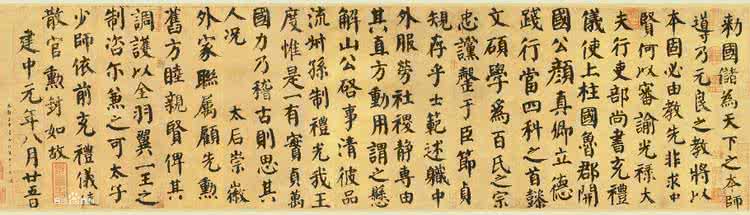 勑國儲為天下之本師
導乃元良之教將以
本固必由教先非求中
賢何以審諭光祿大
夫行吏部尚書充禮
儀使上柱國魯郡開
國公顏真卿立德
踐行當四科之首懿
文碩學為百氏之宗
忠讜罄于臣節貞
規存乎士範述職中
外服勞社稷靜專由
其直方動用謂之懸
解山公啓事清彼品
流叔孫制禮光我王
度惟是一有實貞萬
國力乃稽古則思其
人況 太后崇徽
外家聯屬顧先勳
舊方睦親賢俾其
調護以全羽翼一王之
制咨尔兼之可太子
少師依前充禮儀使
散官勳封如故
建中元年八月廿五日